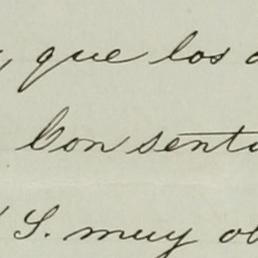 , que los
Con senta
S. muy ob